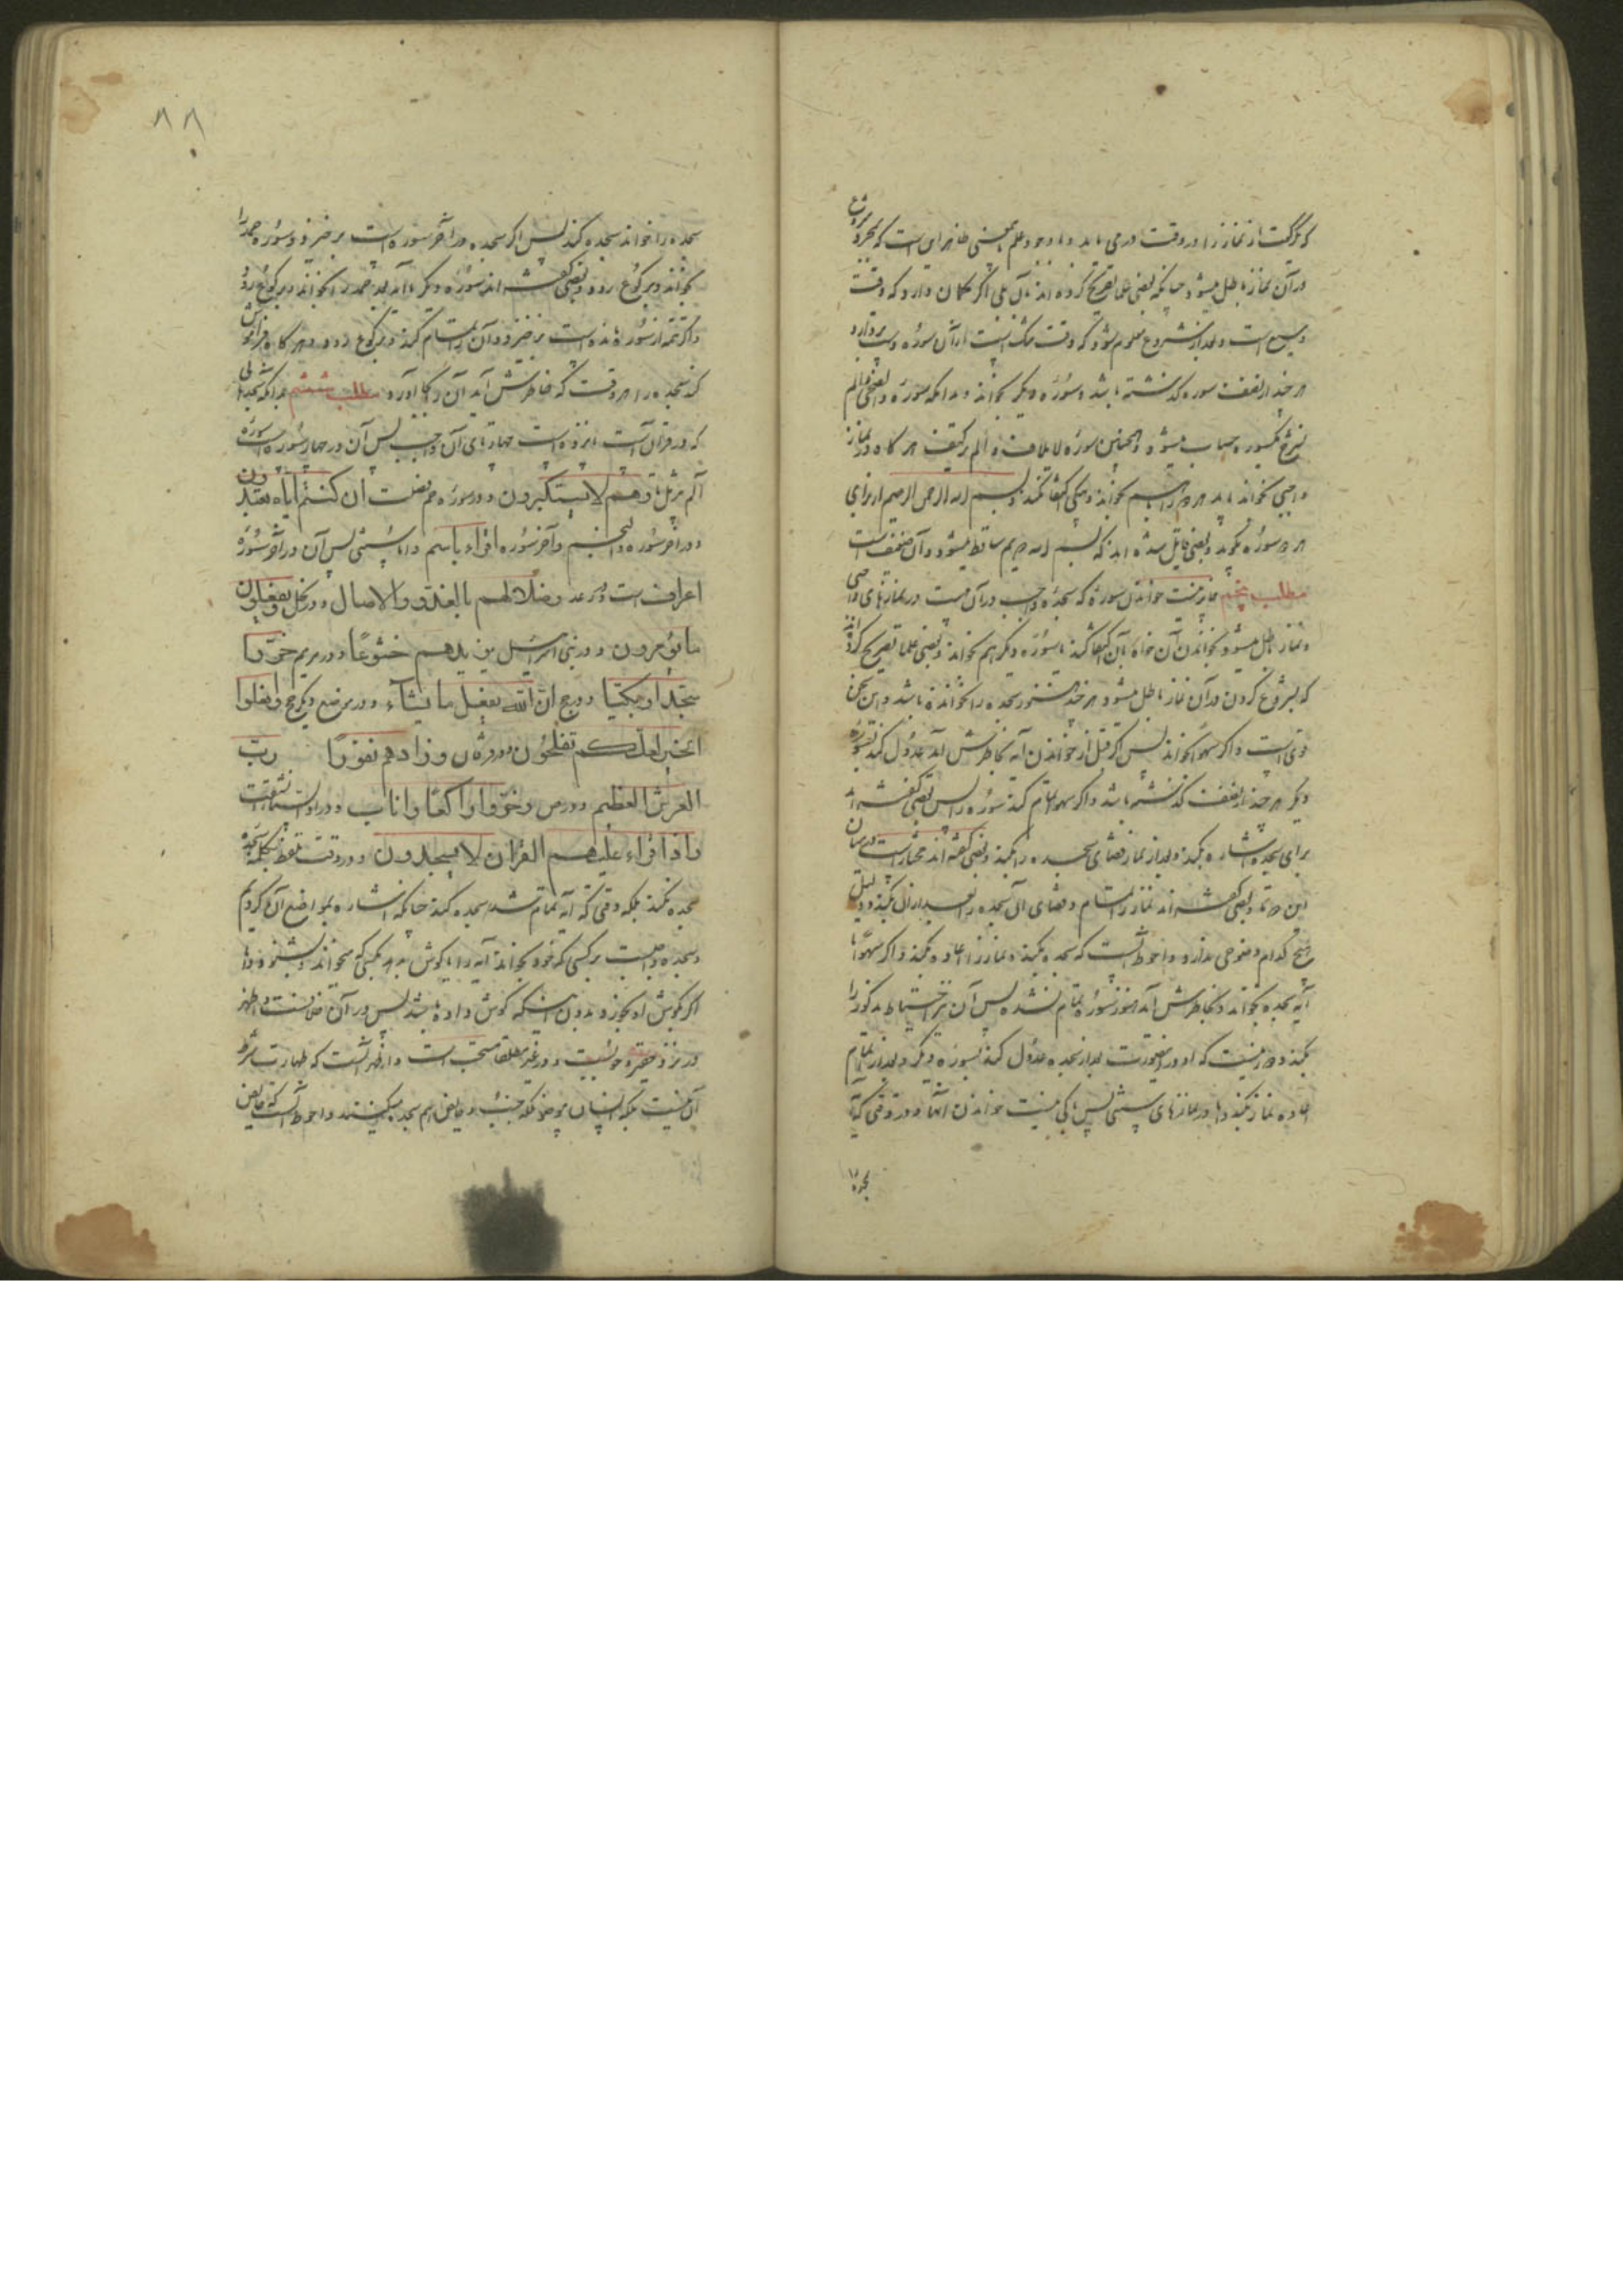 که یک رکعت از نماز را در وقت در می یابد و با وجود علم باین معنی ظاهر این است که بمجرد شروع
در آن نماز باطل میشود چنانکه بعضی علما تصریح کرده اند بآن بلی اگر گمان دارد که وقت
وسیع است و بعد از شروع معلوم شود که وقت تنگ است از آن سوره دست بردارد
هر چند از نصف سوره گذشته باشد و سوره دیگر بخواند و بدانکه سوره والضحی و الم
نشرح یکسوره حساب میشود و همچنین سوره لایلاف و الم تر کیف هر گاه در نماز
واجبی بخواند باید هر دو را با هم بخواند و بیکی اکتفا نکند و بسم الله الرحمن الرحیم از برای
هر دو سوره بگوید و بعضی قایل شده اند که بسم الله دویم ساقط میشود و آن ضعیف است
مطلب پنجم جایز نیست خواندن سوره که سجده واجب در آن هست در نمازهای واجبی
و نماز باطل میشود بخواندن آن خواه بآن اکتفا کند یا سوره دیگر هم بخواند و بعضی علما تصریح کرده اند
که بشروع کردن در آن نماز باطل میشود هر چند هنوز سجده را نخوانده باشد و این سخن
قوی است و اگر سهوا بخواند پس اگر قبل از خواندن آیه بخاطرش آمد عدول کند بسوره
دیگر هر چند از نصف گذشته باشد و اگر سهوا تمام کند سوره را پس بعضی گفته اند
برای سجده اشاره بکند و بعد از نماز قضای سجده را بکند و بعضی گفته اند مختار است در میان
این دو تا و بعضی گفته اند نماز را تمام و قضای آن سجده را بعد از آن بکند و دلیل
هیچ کدام وضوحی ندارد و احوط آنست که سجده بکند و نماز را اعاده بکند و اگر سهوا
آیه سجده بخواند و بخاطرش آمد هنوز سوره تمام نشده پس آن نیز احتیاط مذکور را
بکند و دور نیست که او در اینصورت بعد از سجده عدول کند بسوره دیگر و بعد از اتمام
اعاده نماز بکند و اما در نمازهای سنتی پس باکی نیست خواندن آنها و در وقتی که آیه
سجده را
سجده را خواند سجده کند پس اگر سجده در آخر سوره است بر خیزد و سوره حمد را
بخواند و برکوع رود و بعضی گفته اند سوره دیگر با آن یا حمد را بخواند و برکوع رود
و اگر تتمه از سوره مانده است بر خیزد و آن را تمام کند و برکوع رود و هر گاه فراموش
کند سجده را هر وقت که بخاطرش آید آن را بجا آورد مطلب ششم بدانکه سجدهائی
که در قرآن است پانزده است چهار تای آن واجب پس آن در چهار سوره است سوره
الم تنزیل تا و هم لا یستکبرون و در سوره حم فصلت ان کنتم ایاه تعبدون
و در آخر سوره والنجم و آخر سوره اقراء باسم و اما سنتی پس آن در آخر سوره
اعراف است و در رعد و ظلالهم بالغدو والاصال و در نحل و یفعلون
ما یؤمرون و در بنی اسرائیل یزیدهم خشوعا و در مریم خروا
سجدا و بکیا و در حج ان الله یفعل ما یشاء و در موضع دیگر حج وافعلوا
الخیر لعلکم تفلحون و در فرقان و زادهم نفورا رب
العرش العظیم و در ص و خر راکعا و اناب و در اذا السماء انشقت
و اذا قراء علیهم القران لا یسجدون و در وقت تلفظ بکلمه سجده
سجده نکند بلکه وقتی که آیه تمام شد سجده کند چنانکه اشاره بمواضع آن کردیم
و سجده واجب است بر کسی که خود بخواند آیه را یا گوش بدهد بکسی که میخواند و بشنود و اما
اگر بگوش او بخورد بدون اینکه گوش داده باشد پس در آن خلافست و اظهر
در نزد حقیر وجوب نیست و در غیر اینها مطلقا مستحب است و اظهر آنست که طهارت شرط
آن نیست بلکه انسان بی وضو بلکه جنب و حایض هم سجده میکنند و احوط آنست که حایض